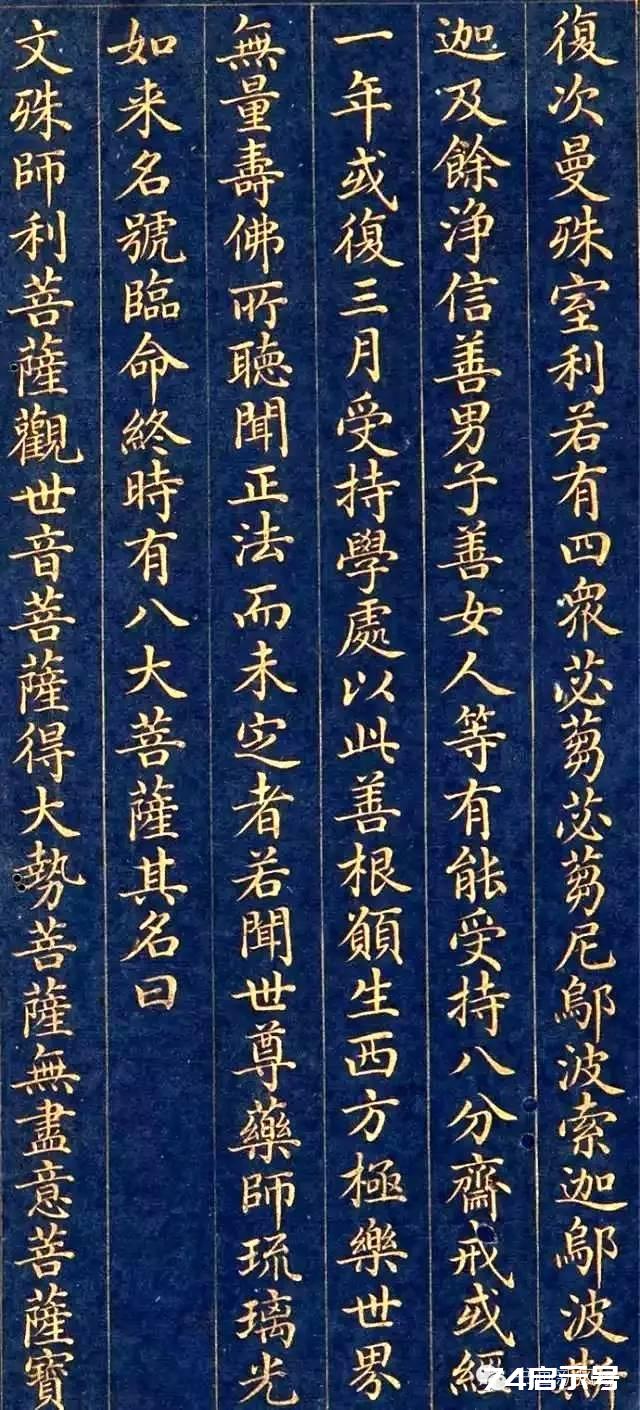 復次曼殊室利若有四衆苾芻苾芻尼鄔波索迦鄔波斯
迦及餘浄信善男子善女人等有能受持八分齋戒或經
一年或復三月受持學處以此善根願生西方極樂世界
無量壽佛所聽聞正法而未定者若聞世尊藥師琉璃光
如来名號臨命終時有八大菩薩其名曰
文殊師利菩薩觀世音菩薩得大勢菩薩無盡意菩薩寶
74启示号